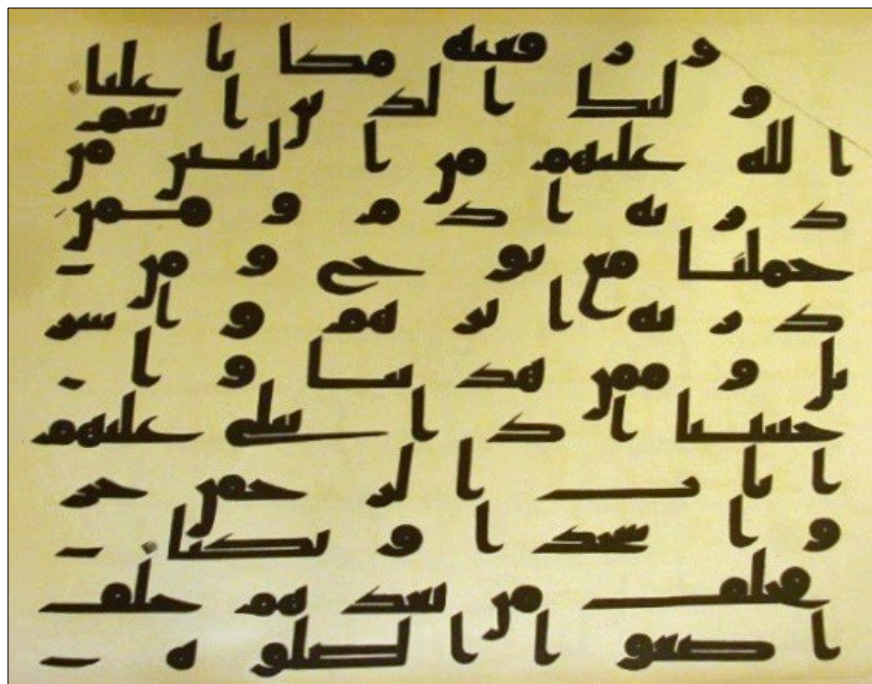 ورفعنه مكانا عليا
ولئك الذين انعم
الله عليهم من النبين من
ذرية ادم وممن
حملنا مع نوح ومن
ذرية ابرهيم واسر
يل وممن هدينا وا
جتبينا اذا تتلى عليهم
ايات الرحمن خر
وا سجدا وبكيا
فخلف من بعدهم خلف
اضعوا الصلوة